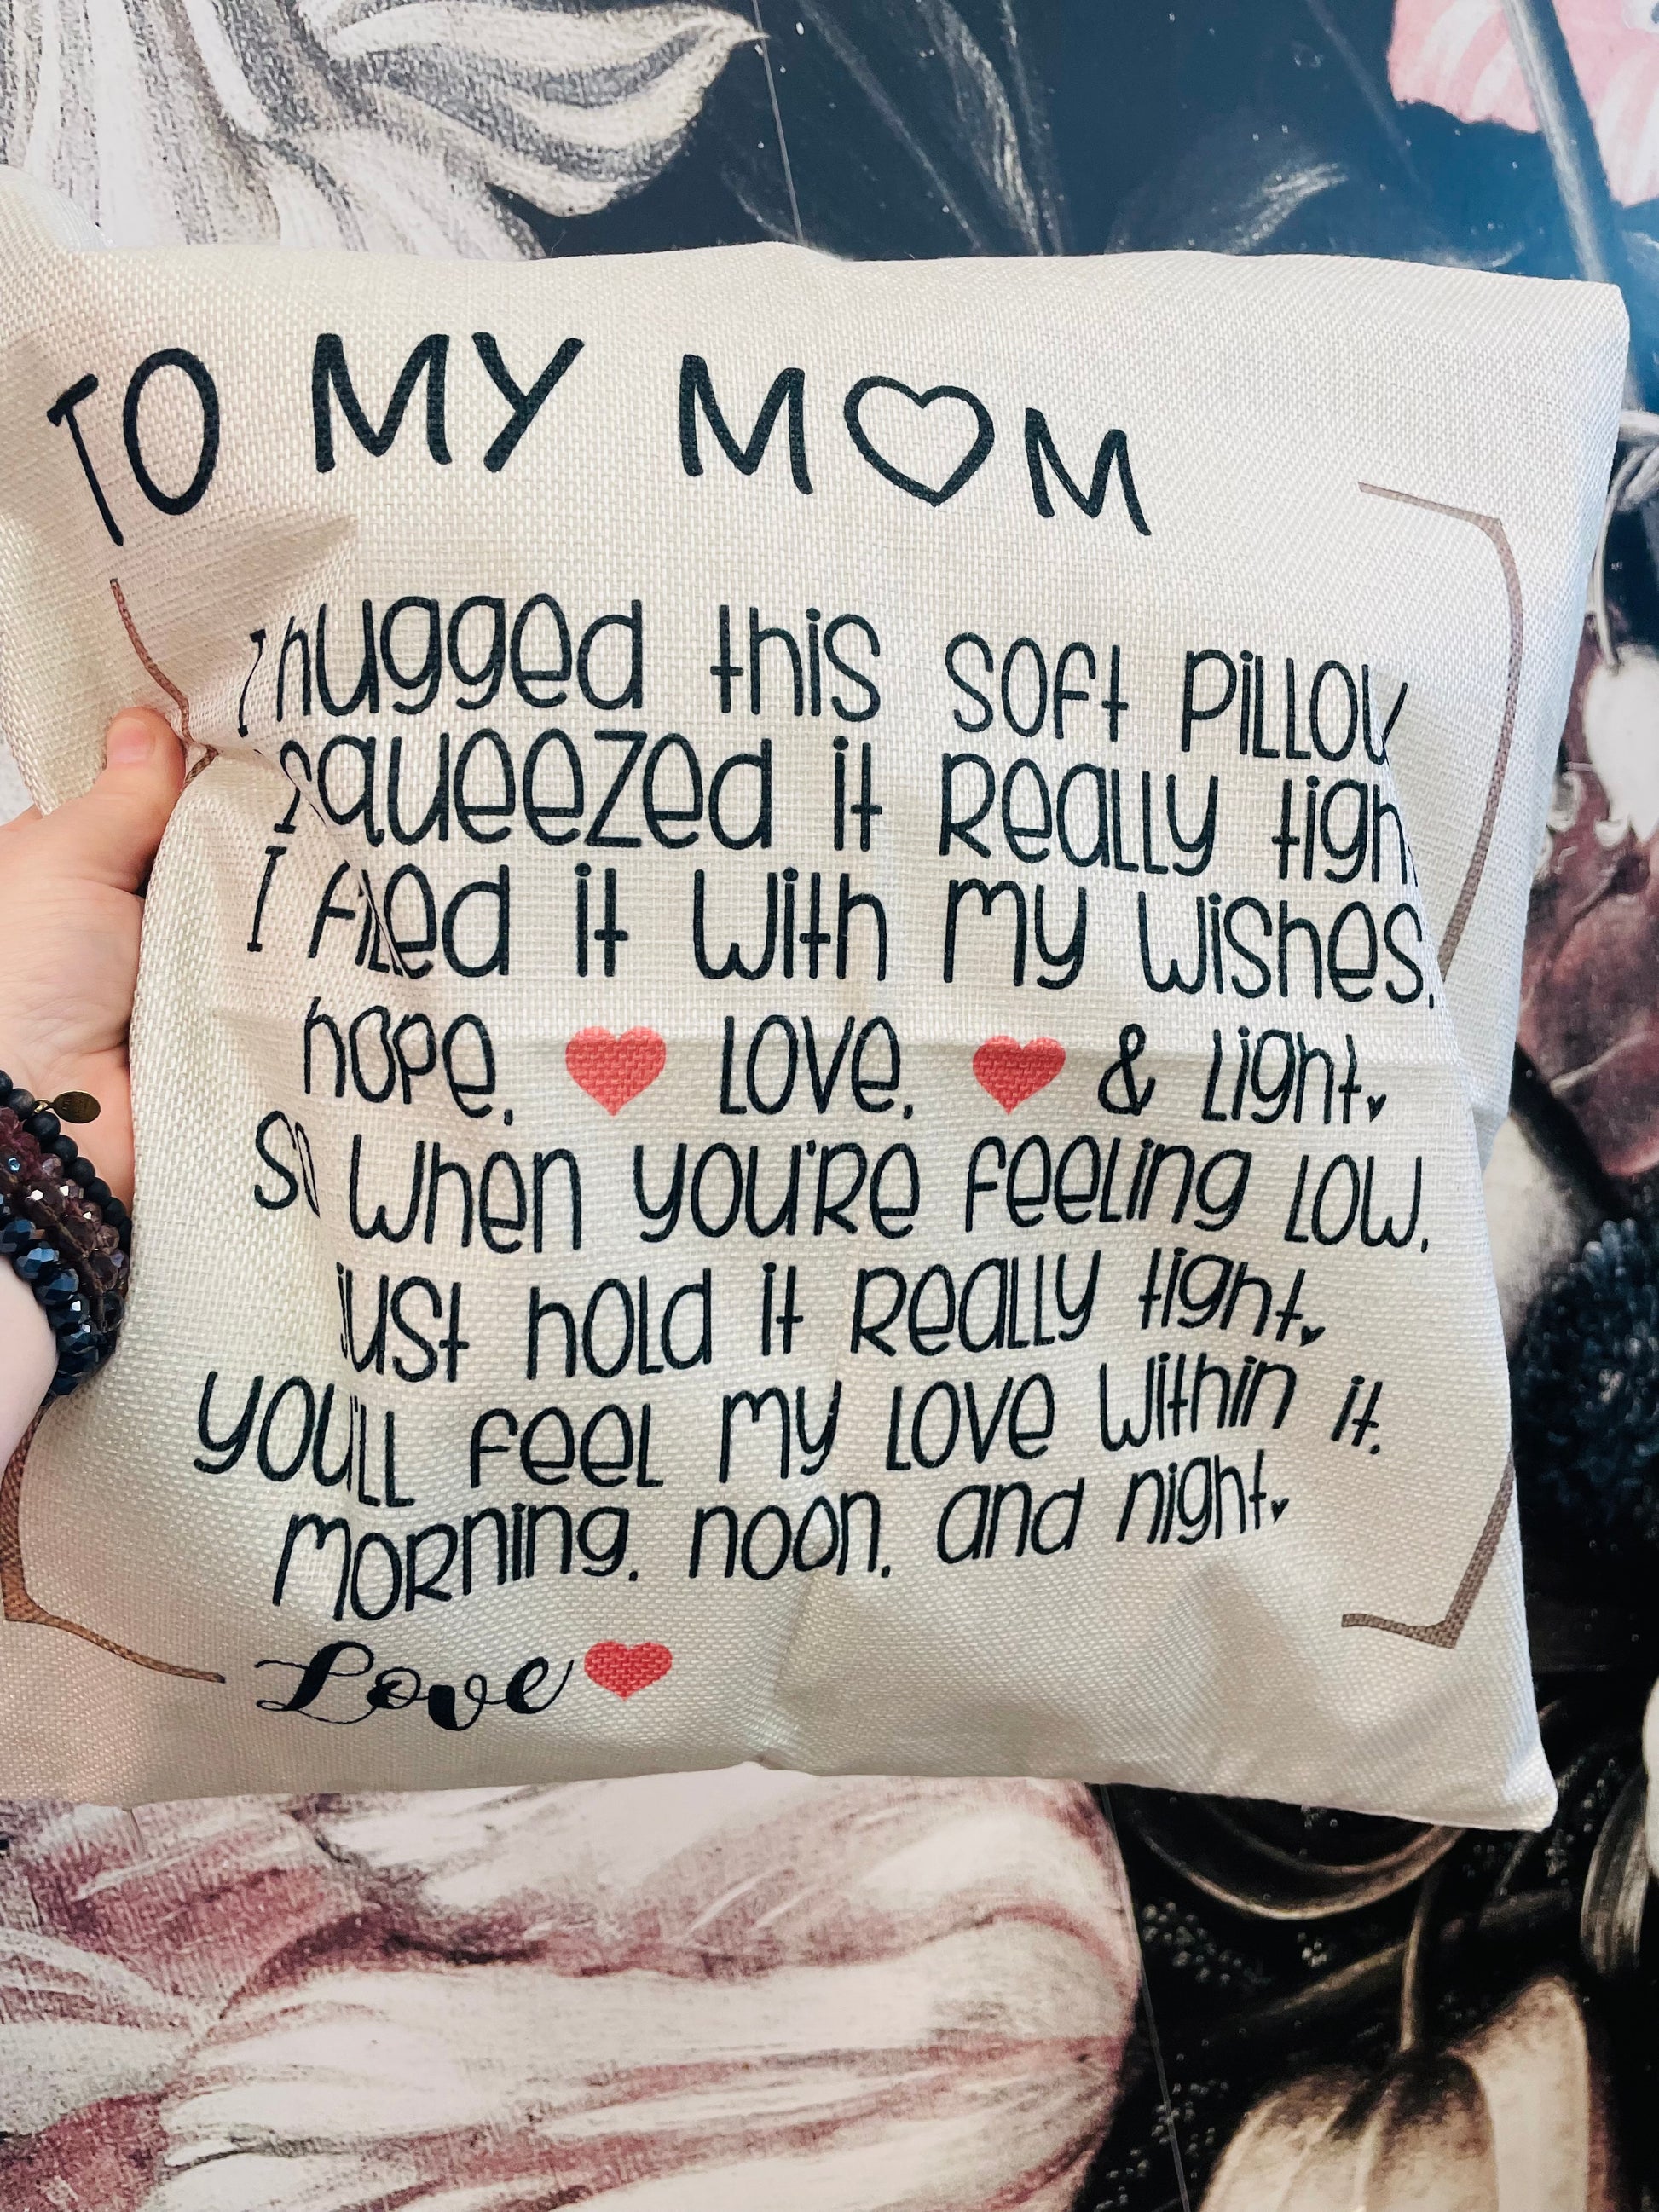 TO MY MOM
I hugged this soft pillow
squeezed it really tight
I filled it with my wishes,
hope, love, & light,
So when you're feeling low,
just hold it really tight,
you'll feel my love within it,
morning, noon, and night,
Love